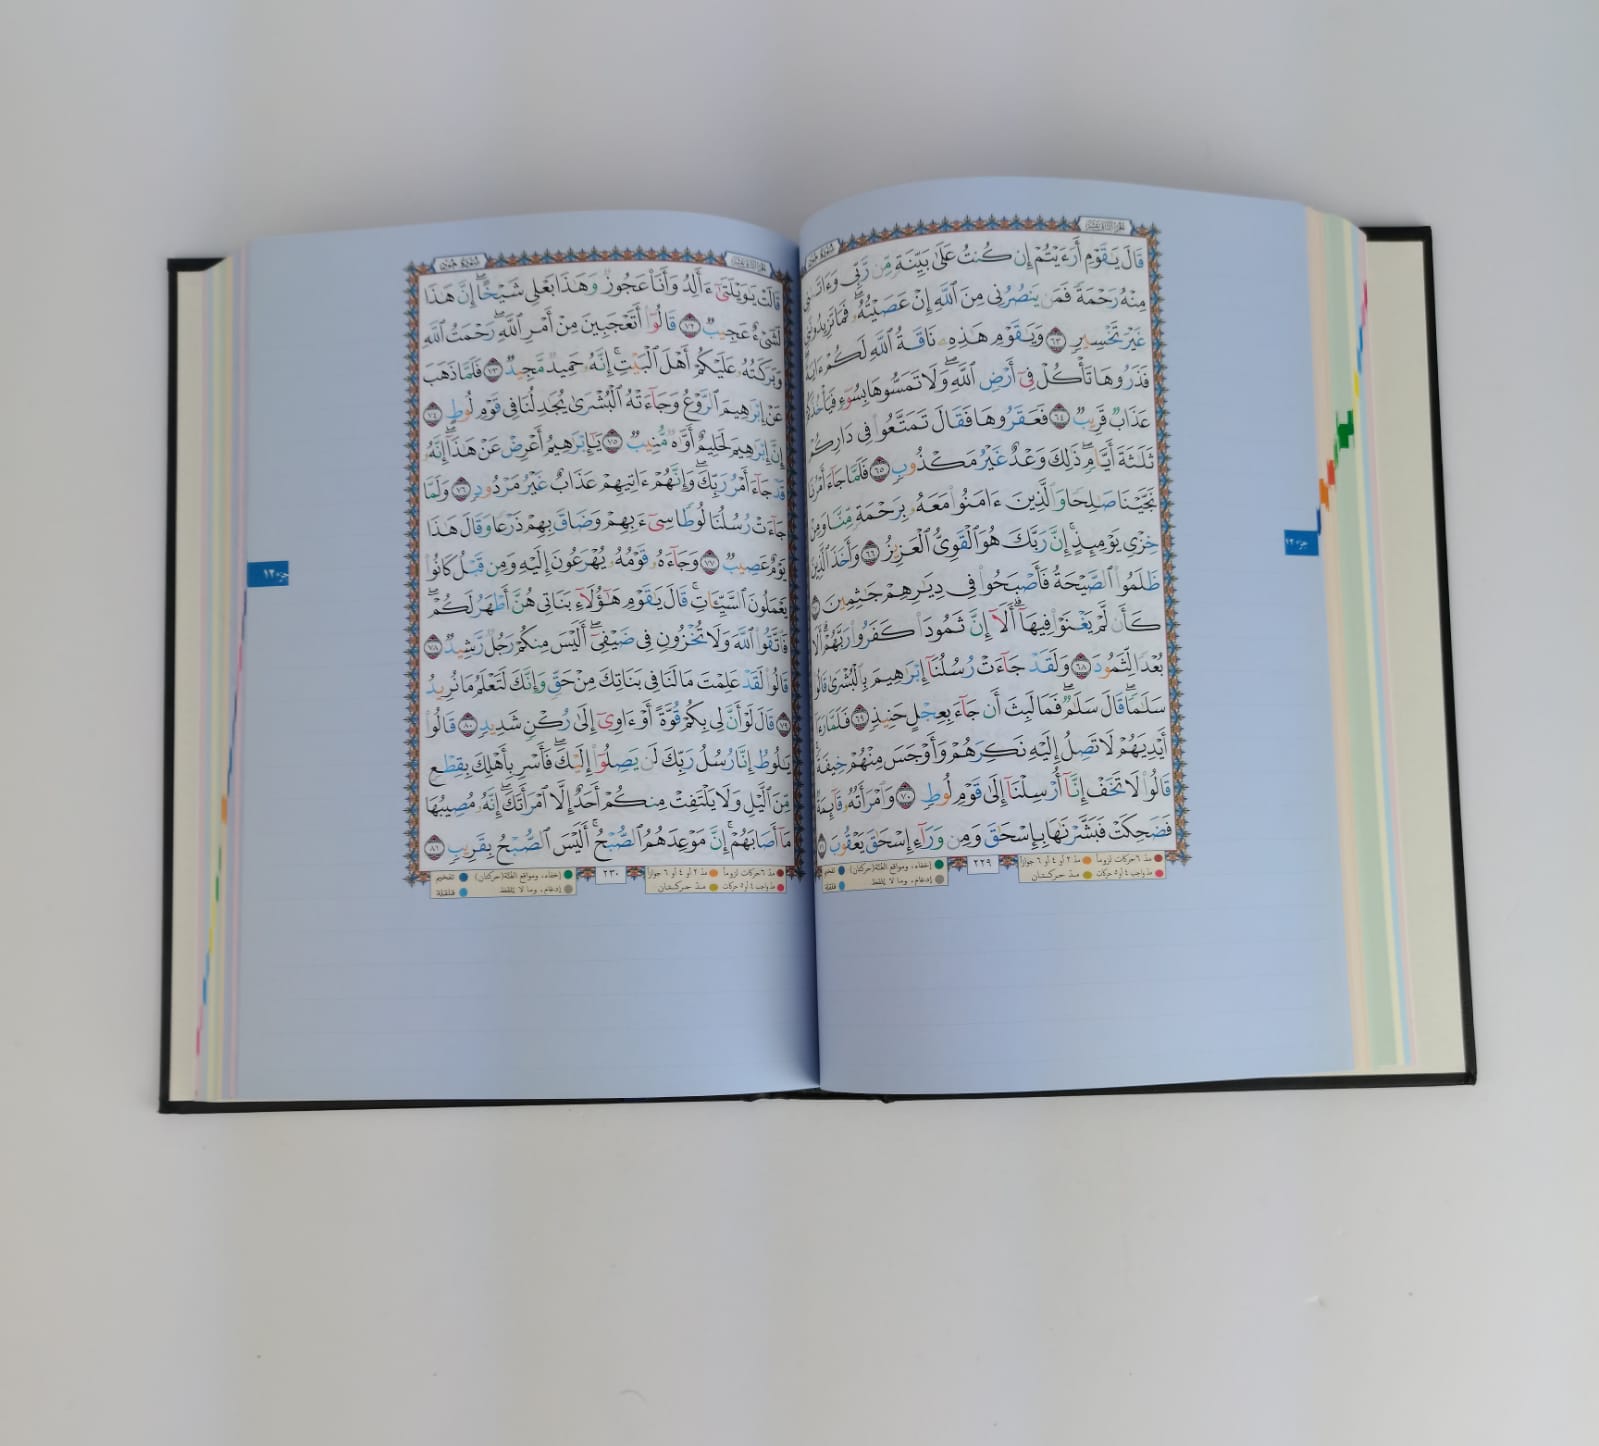 الجزء الثاني عشر
سورة هود
قَالَ يَٰقَوْمِ أَرَءَيْتُمْ إِن كُنتُ عَلَىٰ بَيِّنَةٍ مِّن رَّبِّى وَءَاتَىٰنِى
مِنْهُ رَحْمَةً فَمَن يَنصُرُنِى مِنَ ٱللَّهِ إِنْ عَصَيْتُهُۥ ۖ فَمَا تَزِيدُونَنِى
غَيْرَ تَخْسِيرٍ ٦٣ وَيَٰقَوْمِ هَٰذِهِۦ نَاقَةُ ٱللَّهِ لَكُمْ ءَايَةً
فَذَرُوهَا تَأْكُلْ فِىٓ أَرْضِ ٱللَّهِ ۖ وَلَا تَمَسُّوهَا بِسُوٓءٍ فَيَأْخُذَكُمْ
عَذَابٌ قَرِيبٌ ٦٤ فَعَقَرُوهَا فَقَالَ تَمَتَّعُوا۟ فِى دَارِكُمْ
ثَلَٰثَةَ أَيَّامٍ ۖ ذَٰلِكَ وَعْدٌ غَيْرُ مَكْذُوبٍ ٦٥ فَلَمَّا جَآءَ أَمْرُنَا
نَجَّيْنَا صَٰلِحًا وَٱلَّذِينَ ءَامَنُوا۟ مَعَهُۥ بِرَحْمَةٍ مِّنَّا وَمِنْ
خِزْىِ يَوْمِئِذٍ ۗ إِنَّ رَبَّكَ هُوَ ٱلْقَوِىُّ ٱلْعَزِيزُ ٦٦ وَأَخَذَ ٱلَّذِينَ
ظَلَمُوا۟ ٱلصَّيْحَةُ فَأَصْبَحُوا۟ فِى دِيَٰرِهِمْ جَٰثِمِينَ
كَأَن لَّمْ يَغْنَوْا۟ فِيهَآ ۗ أَلَآ إِنَّ ثَمُودَا۟ كَفَرُوا۟ رَبَّهُمْ ۗ أَلَا
بُعْدًا لِّثَمُودَ ٦٨ وَلَقَدْ جَآءَتْ رُسُلُنَآ إِبْرَٰهِيمَ بِٱلْبُشْرَىٰ قَالُوا۟
سَلَٰمًا ۖ قَالَ سَلَٰمٌ ۖ فَمَا لَبِثَ أَن جَآءَ بِعِجْلٍ حَنِيذٍ ٦٩ فَلَمَّا رَءَآ
أَيْدِيَهُمْ لَا تَصِلُ إِلَيْهِ نَكِرَهُمْ وَأَوْجَسَ مِنْهُمْ خِيفَةً ۚ
قَالُوا۟ لَا تَخَفْ إِنَّآ أُرْسِلْنَآ إِلَىٰ قَوْمِ لُوطٍ ٧٠ وَٱمْرَأَتُهُۥ قَآئِمَةٌ
فَضَحِكَتْ فَبَشَّرْنَٰهَا بِإِسْحَٰقَ وَمِن وَرَآءِ إِسْحَٰقَ يَعْقُوبَ ٧١
مدّ ٦ حركات لزوماً مدّ ٢ أو ٤ أو ٦ جوازاً
مدّ واجب ٤ أو ٥ حركات مدّ حركتان
٢٢٩
إخفاء، ومواقع الغُنَّة (حركتان) تفخيم
إدغام، وما لا يُلفَظ قلقلة
جزء ١٢
الجزء الثاني عشر
سورة هود
قَالَتْ يَٰوَيْلَتَىٰٓ ءَأَلِدُ وَأَنَا۠ عَجُوزٌ وَهَٰذَا بَعْلِى شَيْخًا ۖ إِنَّ هَٰذَا
لَشَىْءٌ عَجِيبٌ ٧٢ قَالُوٓا۟ أَتَعْجَبِينَ مِنْ أَمْرِ ٱللَّهِ ۖ رَحْمَتُ ٱللَّهِ
وَبَرَكَٰتُهُۥ عَلَيْكُمْ أَهْلَ ٱلْبَيْتِ ۚ إِنَّهُۥ حَمِيدٌ مَّجِيدٌ ٧٣ فَلَمَّا ذَهَبَ
عَنْ إِبْرَٰهِيمَ ٱلرَّوْعُ وَجَآءَتْهُ ٱلْبُشْرَىٰ يُجَٰدِلُنَا فِى قَوْمِ لُوطٍ ٧٤
إِنَّ إِبْرَٰهِيمَ لَحَلِيمٌ أَوَّٰهٌ مُّنِيبٌ ٧٥ يَٰٓإِبْرَٰهِيمُ أَعْرِضْ عَنْ هَٰذَآ ۖ إِنَّهُۥ
قَدْ جَآءَ أَمْرُ رَبِّكَ ۖ وَإِنَّهُمْ ءَاتِيهِمْ عَذَابٌ غَيْرُ مَرْدُودٍ ٧٦ وَلَمَّا
جَآءَتْ رُسُلُنَا لُوطًا سِىٓءَ بِهِمْ وَضَاقَ بِهِمْ ذَرْعًا وَقَالَ هَٰذَا
يَوْمٌ عَصِيبٌ ٧٧ وَجَآءَهُۥ قَوْمُهُۥ يُهْرَعُونَ إِلَيْهِ وَمِن قَبْلُ كَانُوا۟
يَعْمَلُونَ ٱلسَّيِّـَٔاتِ ۚ قَالَ يَٰقَوْمِ هَٰٓؤُلَآءِ بَنَاتِى هُنَّ أَطْهَرُ لَكُمْ ۖ
فَٱتَّقُوا۟ ٱللَّهَ وَلَا تُخْزُونِ فِى ضَيْفِىٓ ۖ أَلَيْسَ مِنكُمْ رَجُلٌ رَّشِيدٌ ٧٨
قَالُوا۟ لَقَدْ عَلِمْتَ مَا لَنَا فِى بَنَاتِكَ مِنْ حَقٍّ وَإِنَّكَ لَتَعْلَمُ مَا نُرِيدُ
٧٩ قَالَ لَوْ أَنَّ لِى بِكُمْ قُوَّةً أَوْ ءَاوِىٓ إِلَىٰ رُكْنٍ شَدِيدٍ ٨٠ قَالُوا۟
يَٰلُوطُ إِنَّا رُسُلُ رَبِّكَ لَن يَصِلُوٓا۟ إِلَيْكَ ۖ فَأَسْرِ بِأَهْلِكَ بِقِطْعٍ
مِّنَ ٱلَّيْلِ وَلَا يَلْتَفِتْ مِنكُمْ أَحَدٌ إِلَّا ٱمْرَأَتَكَ ۖ إِنَّهُۥ مُصِيبُهَا
مَآ أَصَابَهُمْ ۚ إِنَّ مَوْعِدَهُمُ ٱلصُّبْحُ ۚ أَلَيْسَ ٱلصُّبْحُ بِقَرِيبٍ ٨١
مدّ ٦ حركات لزوماً مدّ ٢ أو ٤ أو ٦ جوازاً
مدّ واجب ٤ أو ٥ حركات مدّ حركتان
٢٣٠
إخفاء، ومواقع الغُنَّة (حركتان) تفخيم
إدغام، وما لا يُلفَظ قلقلة
جزء ١٢